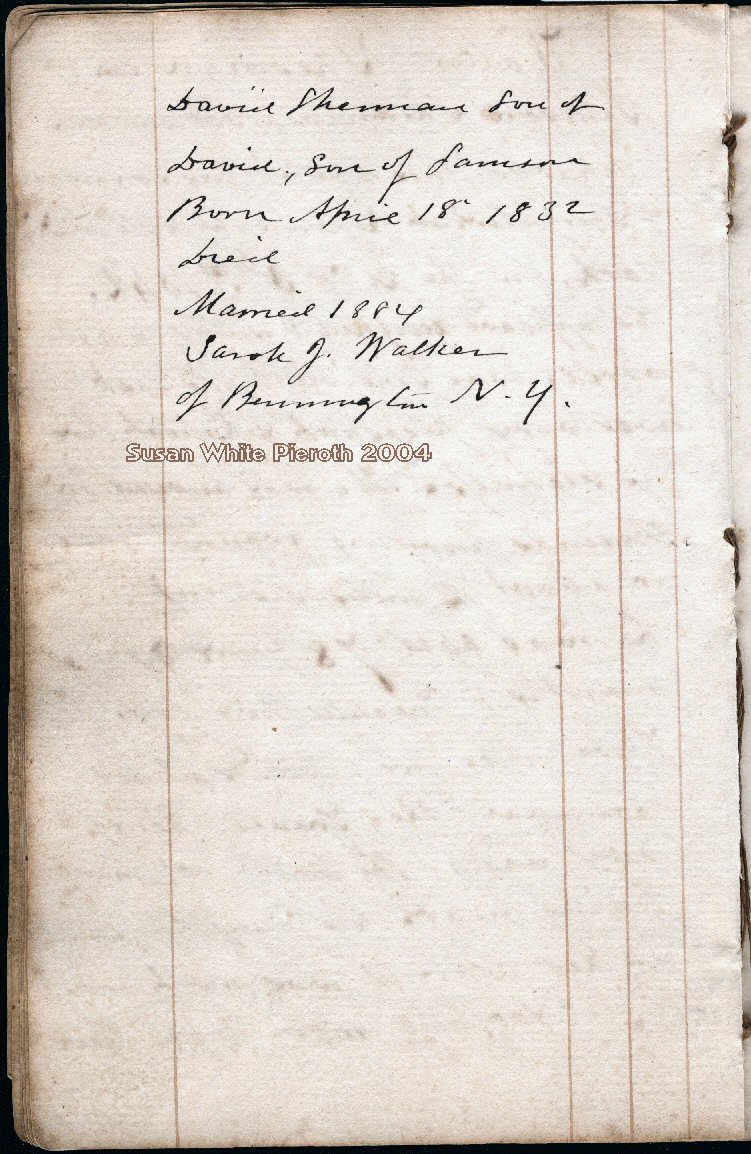 David Sherman Son of
David, Son of Samson
Born April 18 1832
Died
Married 1884
Sarah J. Walker
of Bennington N.Y.
Susan White Pieroth 2004